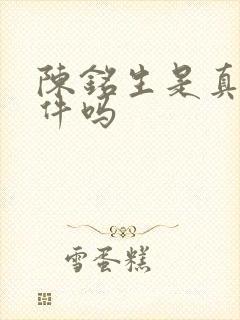 陳銘生是真
件吗
雪蛋糕